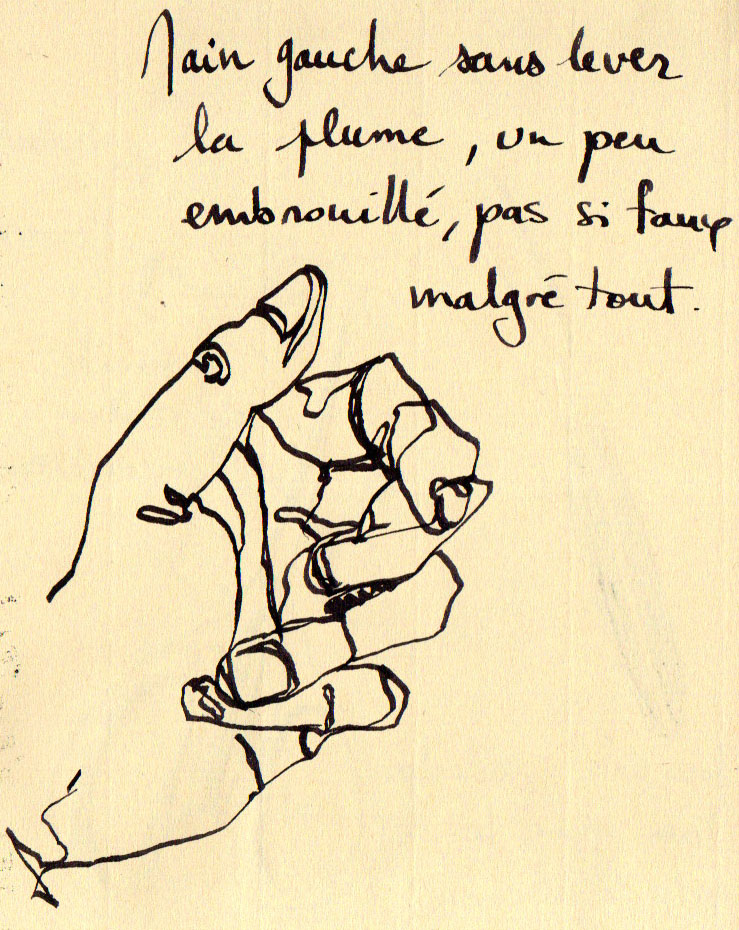 Main gauche sans lever
la plume, un peu
embrouillé, pas si faux
malgré tout.